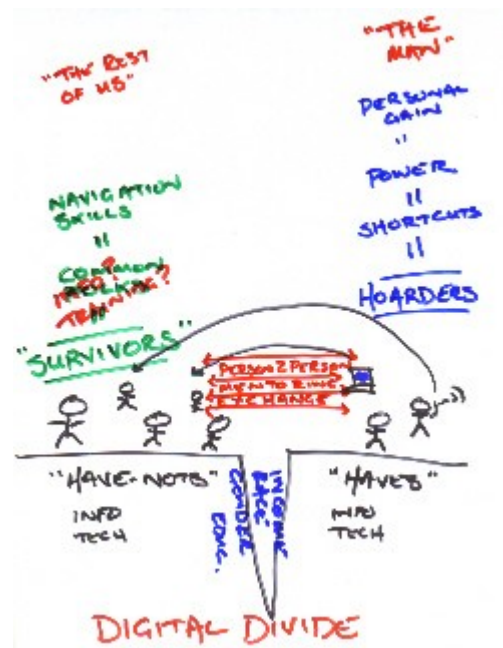 "THE REST
OF US"
NAVIGATION
SKILLS
"
COMMON
TRAINING?
"SURVIVORS"
"THE
MAN"
PERSONAL
GAIN
"
POWER
"
SHORTCUTS
"
HOARDERS
PERSON 2 PERSON
MENTORING
EXCHANGE
"HAVE-NOTS"
INFO
TECH
"HAVES"
INFO
TECH
INCOME
RACE
GENDER
EDUC.
DIGITAL DIVIDE